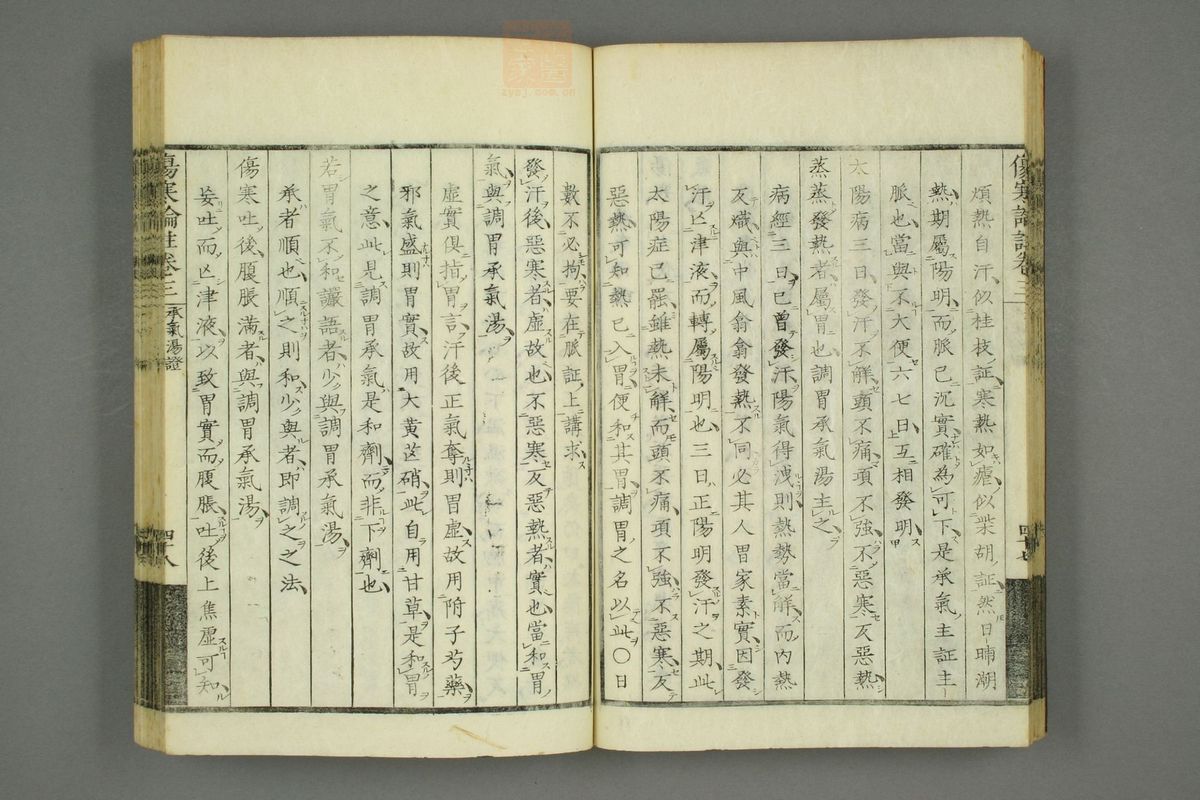 傷寒論註卷三
四十七
煩熱自汗似桂枝証寒熱如瘧似柴胡証然日晡潮
熱期屬陽明而脈已沉實確為可下是承氣主証主
脈也當與不大便六七日互相發明
太陽病三日發汗不解頭不痛項不強不惡寒反惡熱
蒸蒸發熱者屬胃也調胃承氣湯主之
病經三日已曾發汗陽氣得洩則熱勢當解而內熱
反熾與中風翕翕發熱不同必其人胃家素實因發
汗亾津液而轉屬陽明也三日正陽明發汗之期此
太陽症已罷雖熱未解而頭不痛項不強不惡寒反
惡熱可知熱已入胃便和其胃調胃之名以此〇日
數不必拘要在脈証上講求
發汗後惡寒者虛故也不惡寒反惡熱者實也當和胃
氣與調胃承氣湯
虛實俱指胃言汗後正氣奪則胃虛故用附子芍藥
邪氣盛則胃實故用大黃芒硝此自用甘草是和胃
之意此見調胃承氣是和劑而非下劑也
若胃氣不和讝語者少與調胃承氣湯
承者順也順之則和少與者即調之之法
傷寒吐後腹脹滿者與調胃承氣湯
妄吐而亾津液以致胃實而腹脹吐後上焦虛可知
傷寒論註卷三
承氣湯證
四十八
zysj.com.cn